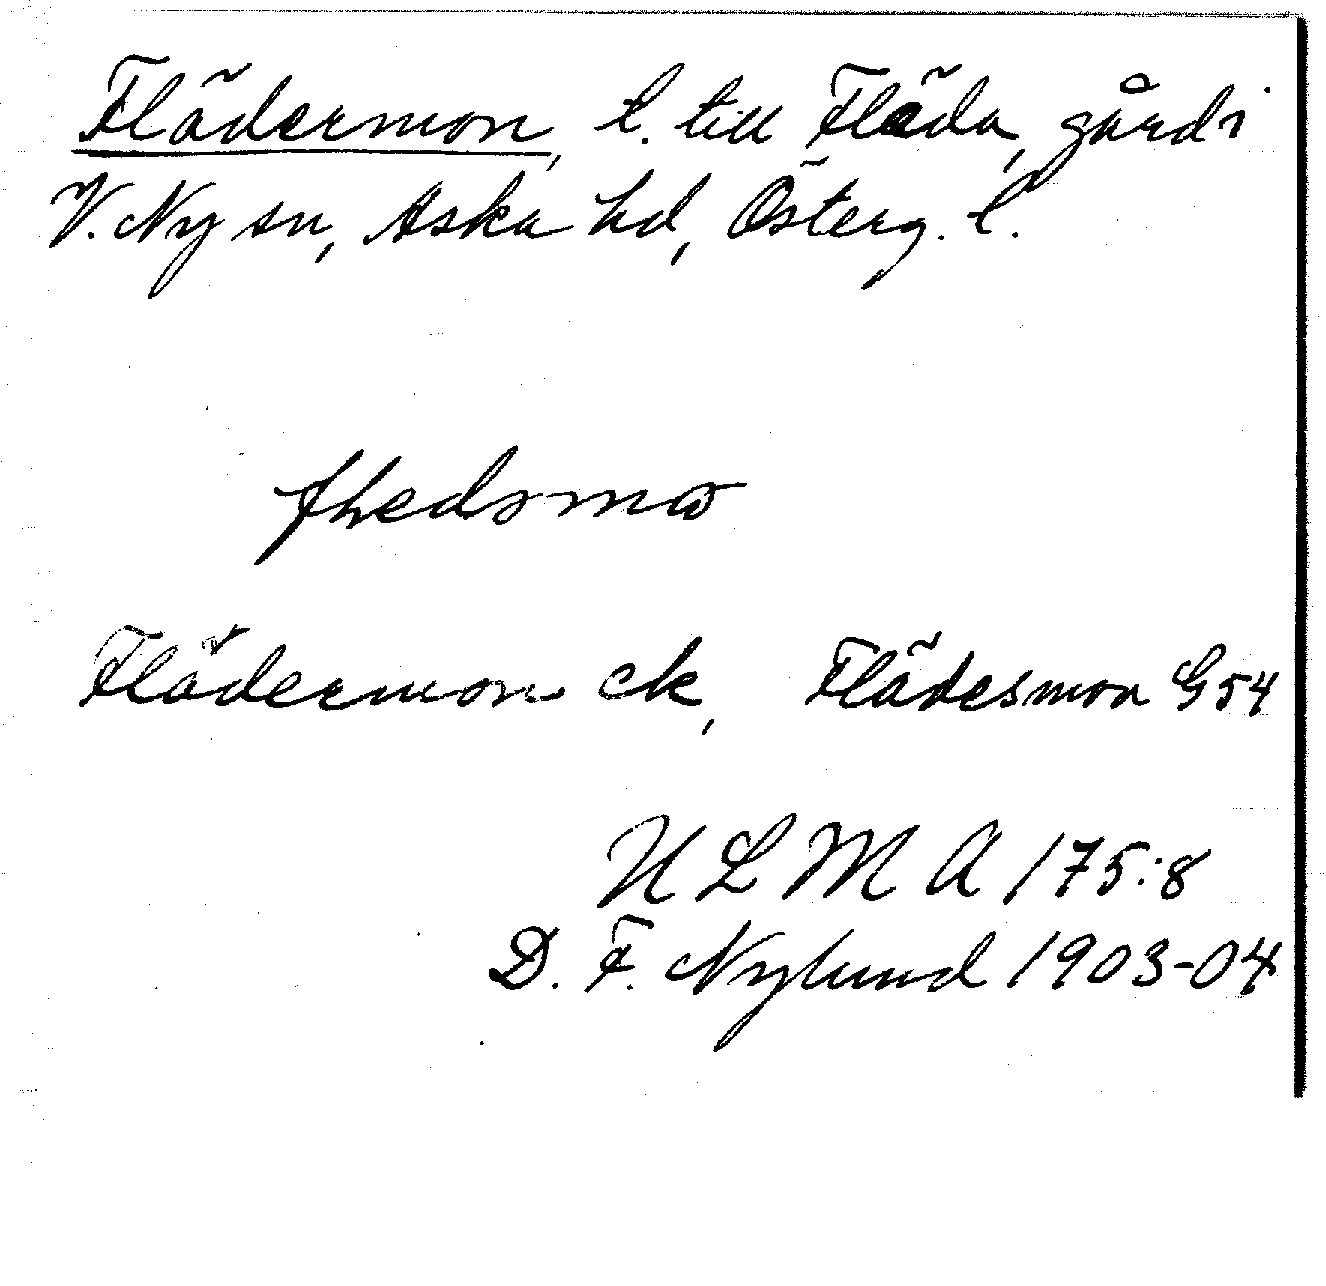 Flädermon, l. till Fläda, gård i
V. Ny sn, Aska hd, Österg. l.
Flädermon ek, Flädesmon G54
ULMA 175:8
D. F. Nylund 1903-04